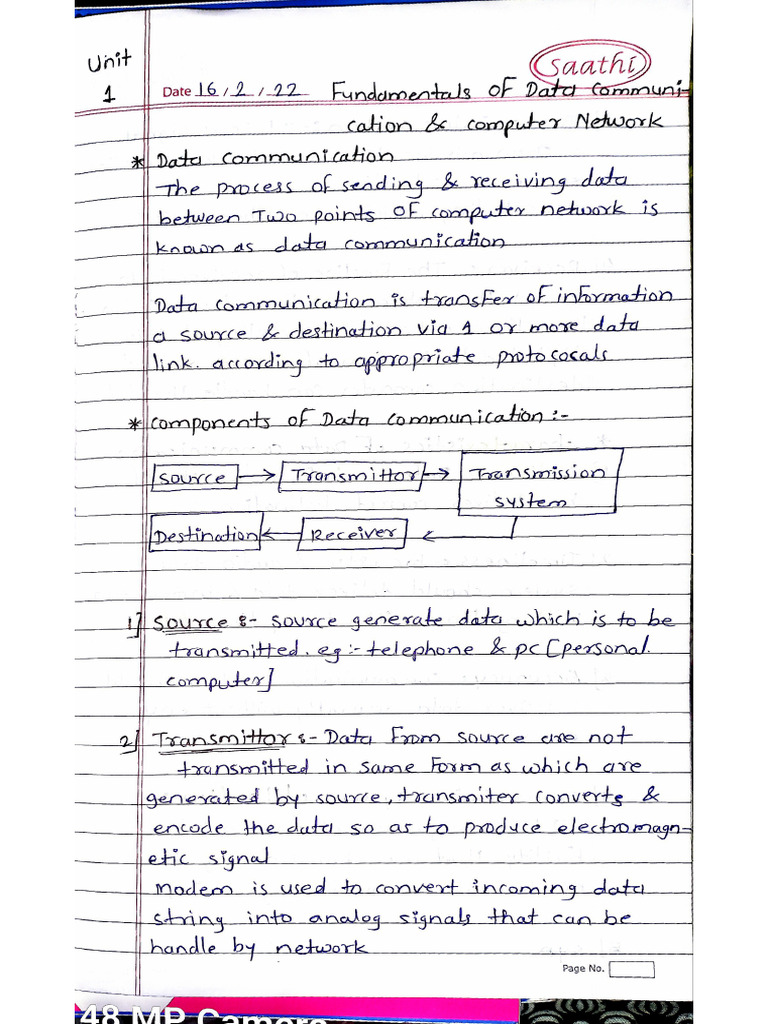 Unit
1
saathi
Date 16 / 2 / 22 Fundamentals OF Data Communi-
cation & computer Network
* Data communication
The process of sending & receiving data
between Two points OF computer network is
known as data communication
Data communication is transfer of information
a source & destination via 1 or more data
link. according to appropriate protocosals
* components of Data communication :-
Source → Transmittor → Transmission
system
Destination ← Receiver ←
1] Source :- source generate data which is to be
transmitted. eg :- telephone & pc [personal.
computer]
2] Transmittor :- Data From source are not
transmitted in same Form as which are
generated by source, transmiter converts &
encode the data so as to produce electromagn-
etic signal
Modem is used to convert incoming data
string into analog signals that can be
handle by network
Page No.
48 MP Camera